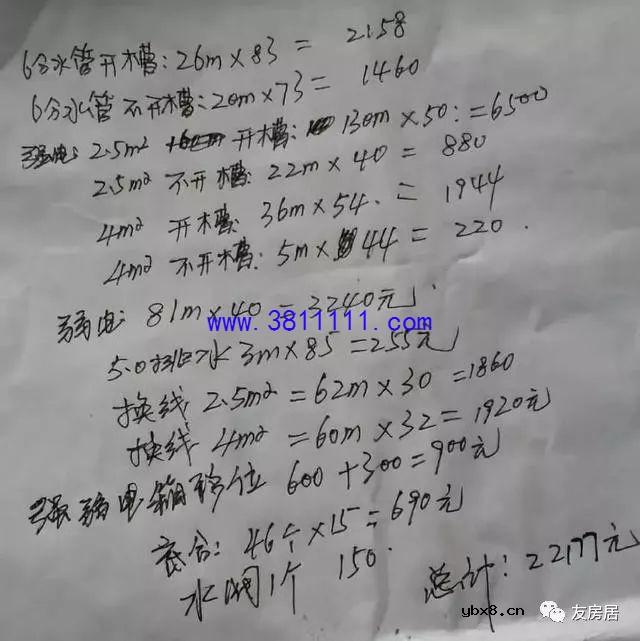 6分水管开槽:26m×83 = 2158
6分水管不开槽:20m×73 = 1460
强电:2.5m² 开槽: 130m×50:=6500
2.5m² 不开槽:22m×40 = 880
4m² 开槽:36m×54. = 1944
4m² 不开槽:5m×44 = 220.
弱电: 81m×40=3240元
www.3811111.com
50排水3m×85=255元
换线 2.5m²=62m×30=1860
换线 4m²=60m×32=1920元
强弱电箱移位 600+300=900元
底合:46个×15=690元
水阀1个 150.
总计:22177元
ybx8.cn 友房居